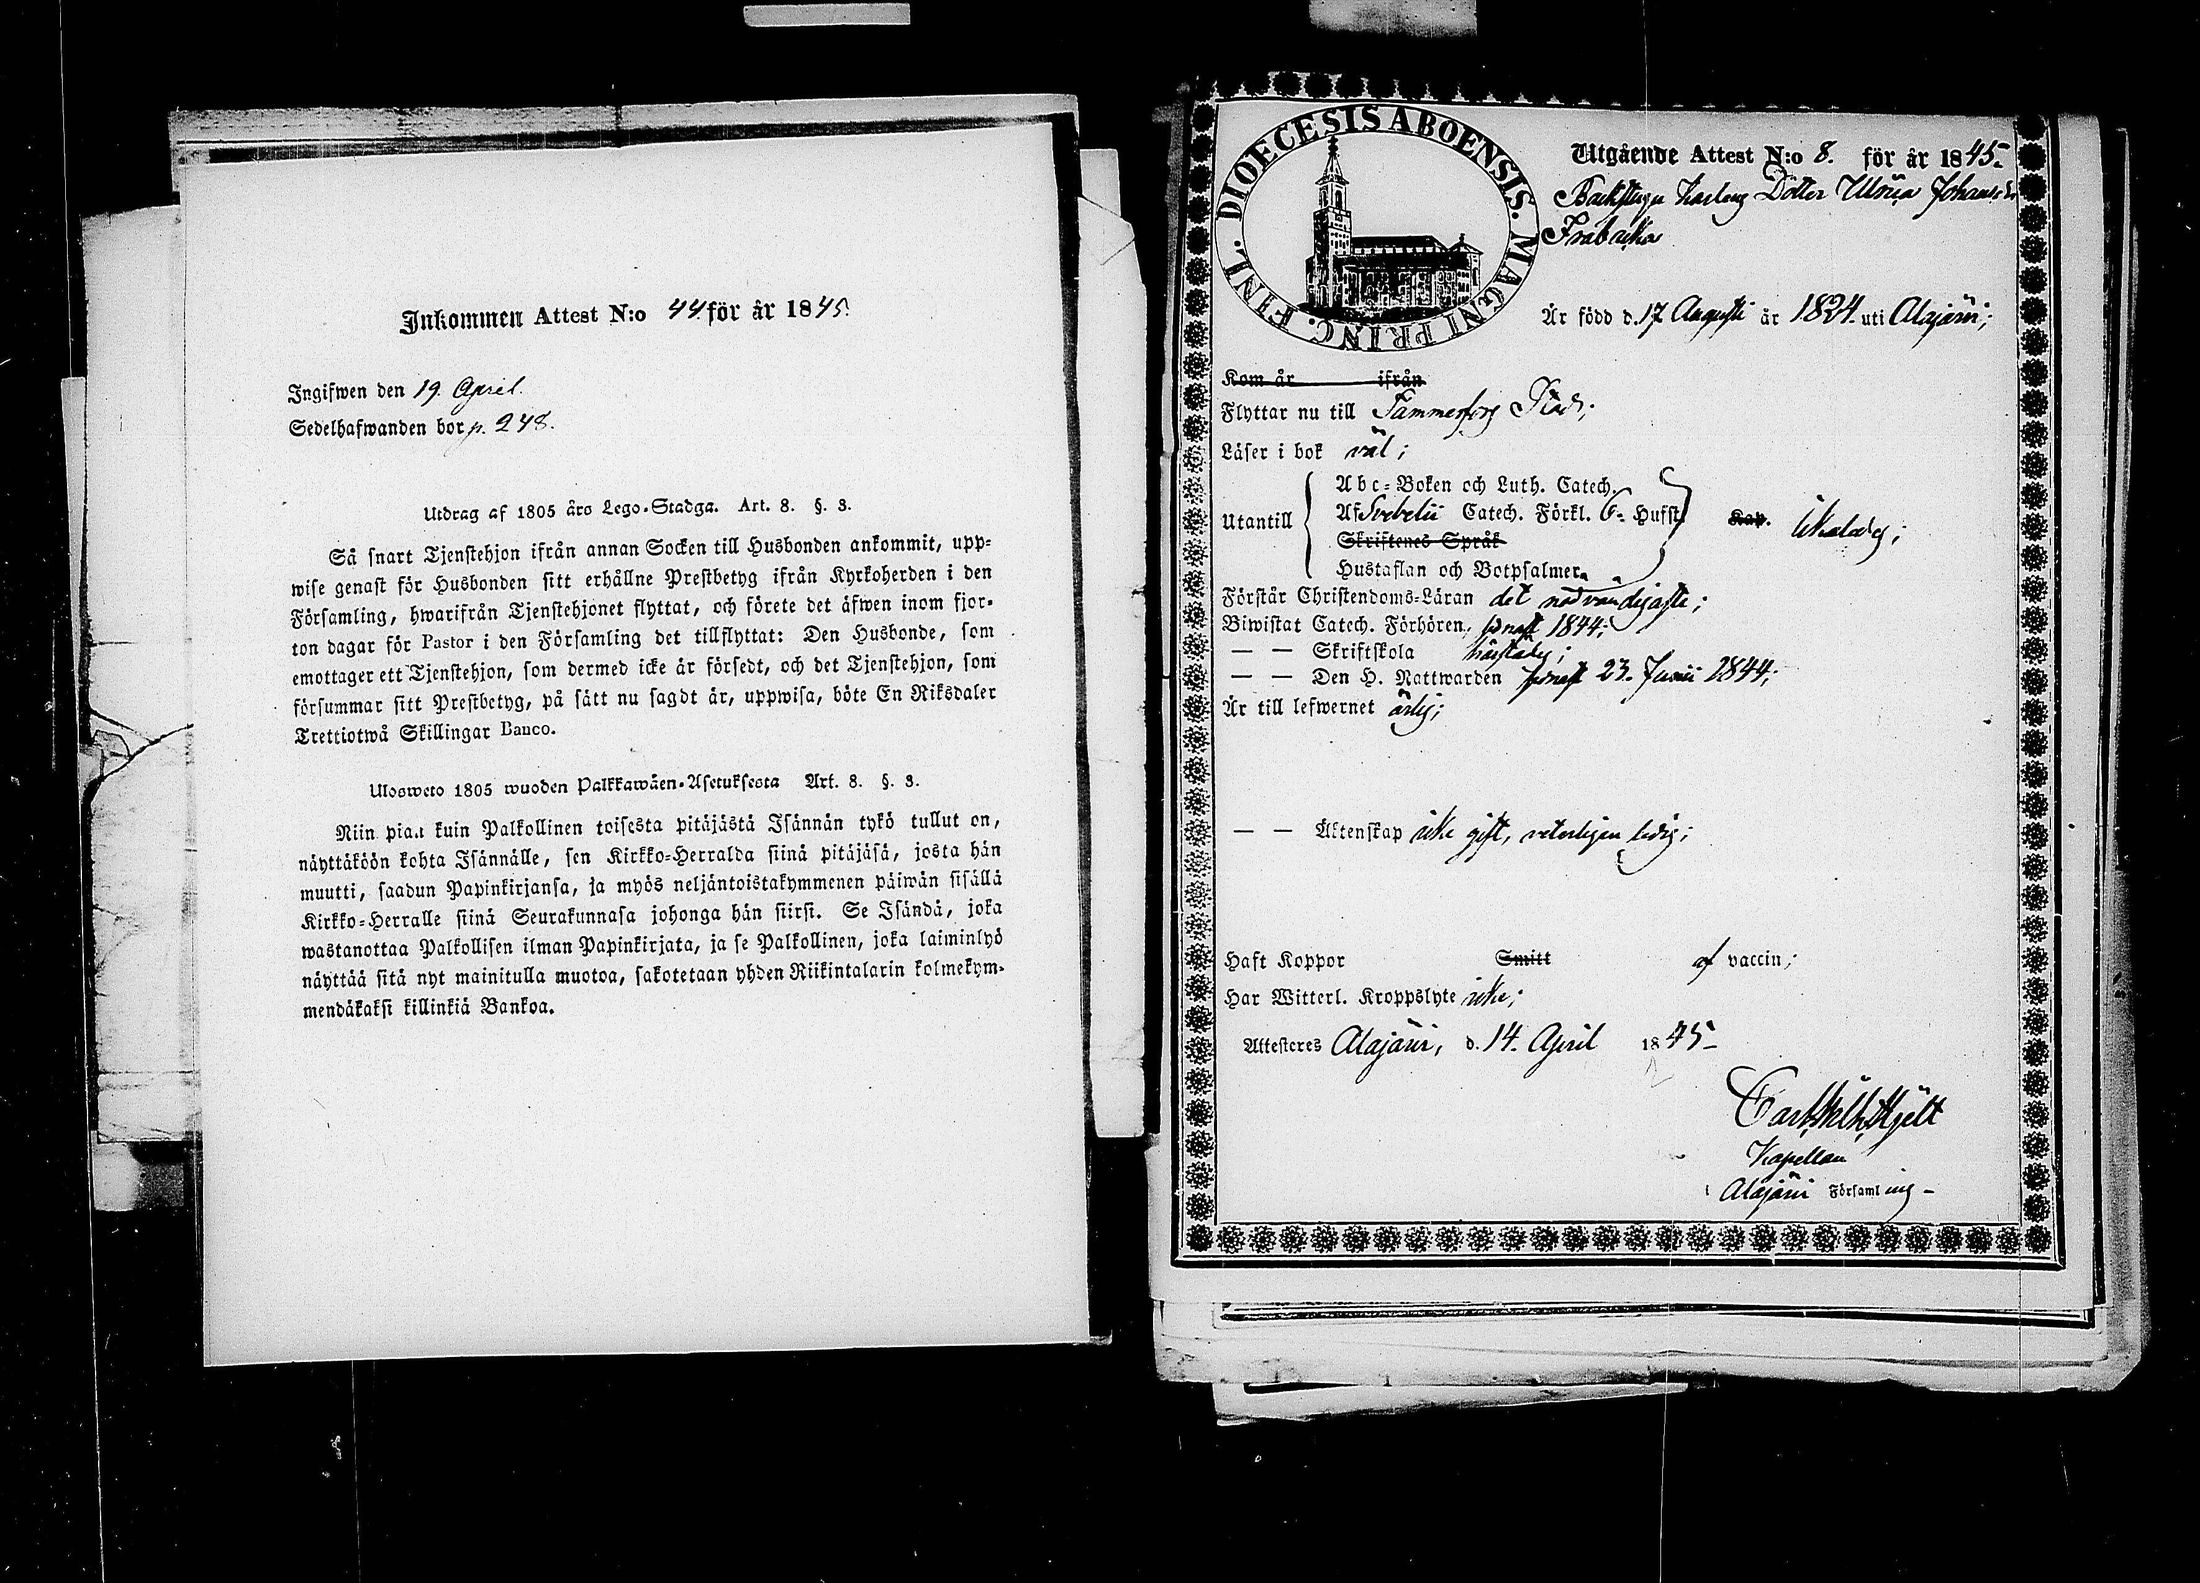 Inkommen Attest N:o 44 för år 1845.
Ingifwen den 19. April.
Sedelhafwanden bor p. 248.
Utdrag af 1805 års Lego-Stadga. Art. 8. §. 3.
Så snart Tjenstehjon ifrån annan Socken till Husbonden ankommit, upp-
wise genast för Husbonden sitt erhållne Prestbetyg ifrån Kyrkoherden i den
Församling, hwarifrån Tjenstehjonet flyttat, och förete det äfwen inom fjor-
ton dagar för Pastor i den Församling det tillflyttat: Den Husbonde, som
emottager ett Tjenstehjon, som dermed icke är försedt, och det Tjenstehjon, som
försummar sitt Prestbetyg, på sätt nu sagdt är, uppwisa, böte En Riksdaler
Trettiotwå Skillingar Banco.
Ulosweto 1805 wuoden Palkkawäen-Asetuksesta Art. 8. §. 3.
Niin pian kuin Palkollinen toisesta pitäjästä Isännän tykö tullut on,
näyttäköön kohta Isännälle, sen Kirkko-Herralda siinä pitäjäsä, josta hän
muutti, saadun Papinkirjansa, ja myös neljäntoistakymmenen päiwän sisällä
Kirkko-Herralle siinä Seurakunnasa johonga hän siirsi. Se Isändä, joka
wastanottaa Palkollisen ilman Papinkirjata, ja se Palkollinen, joka laiminlyö
näyttää sitä nyt mainitulla muotoa, sakotetaan yhden Riikintalarin kolmekym-
mendäkaksi killinkiä Bankoa.
DIOECESIS ABOENSIS. MAGNI PRINC. FINL.
Utgående Attest N:o 8. för år 1845.
Dotter Ulrica Johansdr
Är född d. 17 Augusti år 1824. uti Alajärvi;
Kom år ifrån
Flyttar nu till Tammerfors Stad;
Läser i bok väl;
Abc-Boken och Luth. Catech.
Utantill Af Svebelii Catech. Förkl. 6 Hufst. Kap.
Skriftenes Språk
Hustaflan och Botpsalmer.
Förstår Christendoms-Läran det nödvändigaste;
Biwistat Catech. Förhören, senast 1844;
— — Skriftskola härstädes;
— — Den H. Nattwarden senast 23. Junii 1844;
Är till lefwernet ärlig;
— — Äktenskap icke gift, veterligen ledig;
Haft Koppor Smitt af vaccin;
Har Witterl. Kroppslyte icke;
Attesteres Alajärvi, d. 14. April 1845
Carl Wilh. Hjelt
Kapellan
i Alajärvi Församling